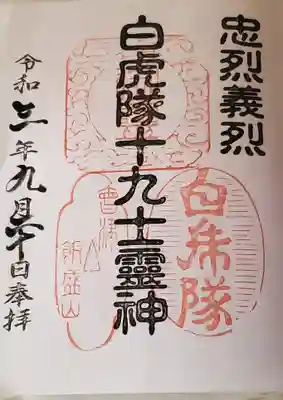 忠烈義烈
白虎隊十九士靈神
令和三年九月十日奉拝
白虎隊
會津
飯盛山